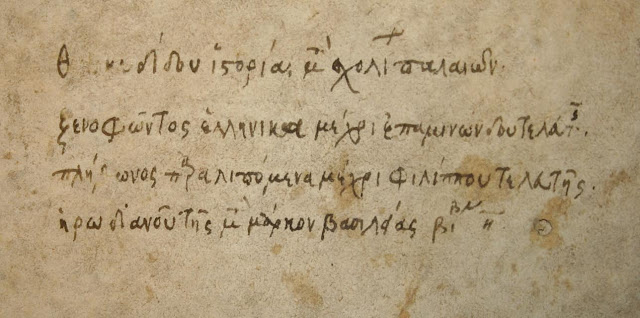 Θ κιδίδου ἱστορία, μ σχολι παλαιῶν.
ξενοφῶντος ἑλληνικα μέχρι ἐπαμινώνδου τελ
πλή ωνος παραλιπόμενα μέχρι φιλίππου τελ τῆς.
ἡρωδιανοῦ τῆς μ μάρκον βασιλείας βι η